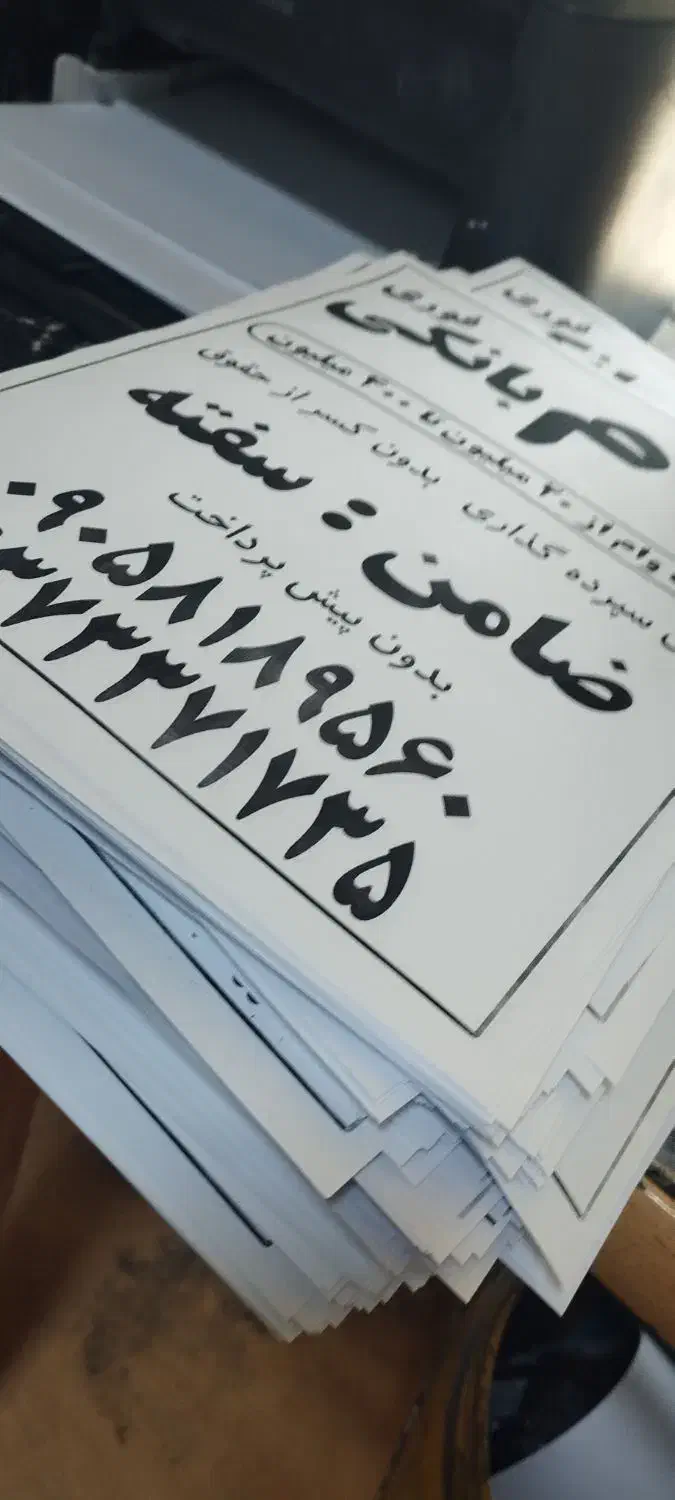 فوری
م بانکی
وام از ۲۰ میلیون تا ۴۰۰ میلیون
سپرده گذاری بدون کسر از حقوق
ضامن : سفته
بدون پیش پرداخت
۰۹۰۵۸۱۸۹۵۶۰
۳۷۳۳۷۱۷۳۵
فوری